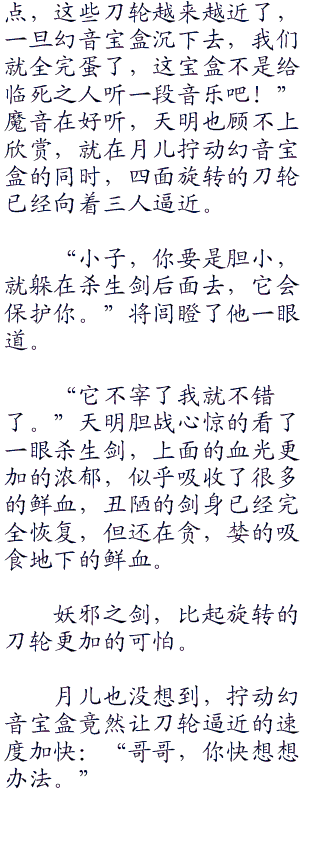 点，这些刀轮越来越近了，
一旦幻音宝盒沉下去，我们
就全完蛋了，这宝盒不是给
临死之人听一段音乐吧！”
魔音在好听，天明也顾不上
欣赏，就在月儿拧动幻音宝
盒的同时，四面旋转的刀轮
已经向着三人逼近。
“小子，你要是胆小，
就躲在杀生剑后面去，它会
保护你。”将闾瞪了他一眼
道。
“它不宰了我就不错
了。”天明胆战心惊的看了
一眼杀生剑，上面的血光更
加的浓郁，似乎吸收了很多
的鲜血，丑陋的剑身已经完
全恢复，但还在贪，婪的吸
食地下的鲜血。
妖邪之剑，比起旋转的
刀轮更加的可怕。
月儿也没想到，拧动幻
音宝盒竟然让刀轮逼近的速
度加快：“哥哥，你快想想
办法。”